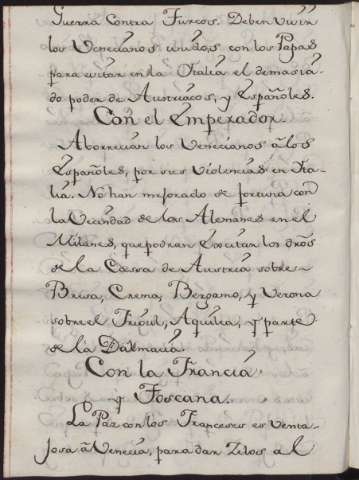 Guerra Contra Turcos. Deben vivir
los Venecianos unidos con los Papas
para evitar en la Italia el demasia-
do poder de Austriacos, y Españoles.
Con el Emperador
Aborrecian los Venecianos â los
Españoles, por sus Violencias en Ita-
lia. No han mejorado de fortuna con
la Vecindad de los Alemanes en el
Milanes, que podran executar los dros
de la Casa de Austria sobre
Bresa, Crema, Bergamo, y Verona
sobre el Frioul, Aquilea, y parte
de la Dalmacia.
Con la Francia
y Toscana.
La Paz con los Franceses es venta-
josa â Venecia, para dar Zelos al